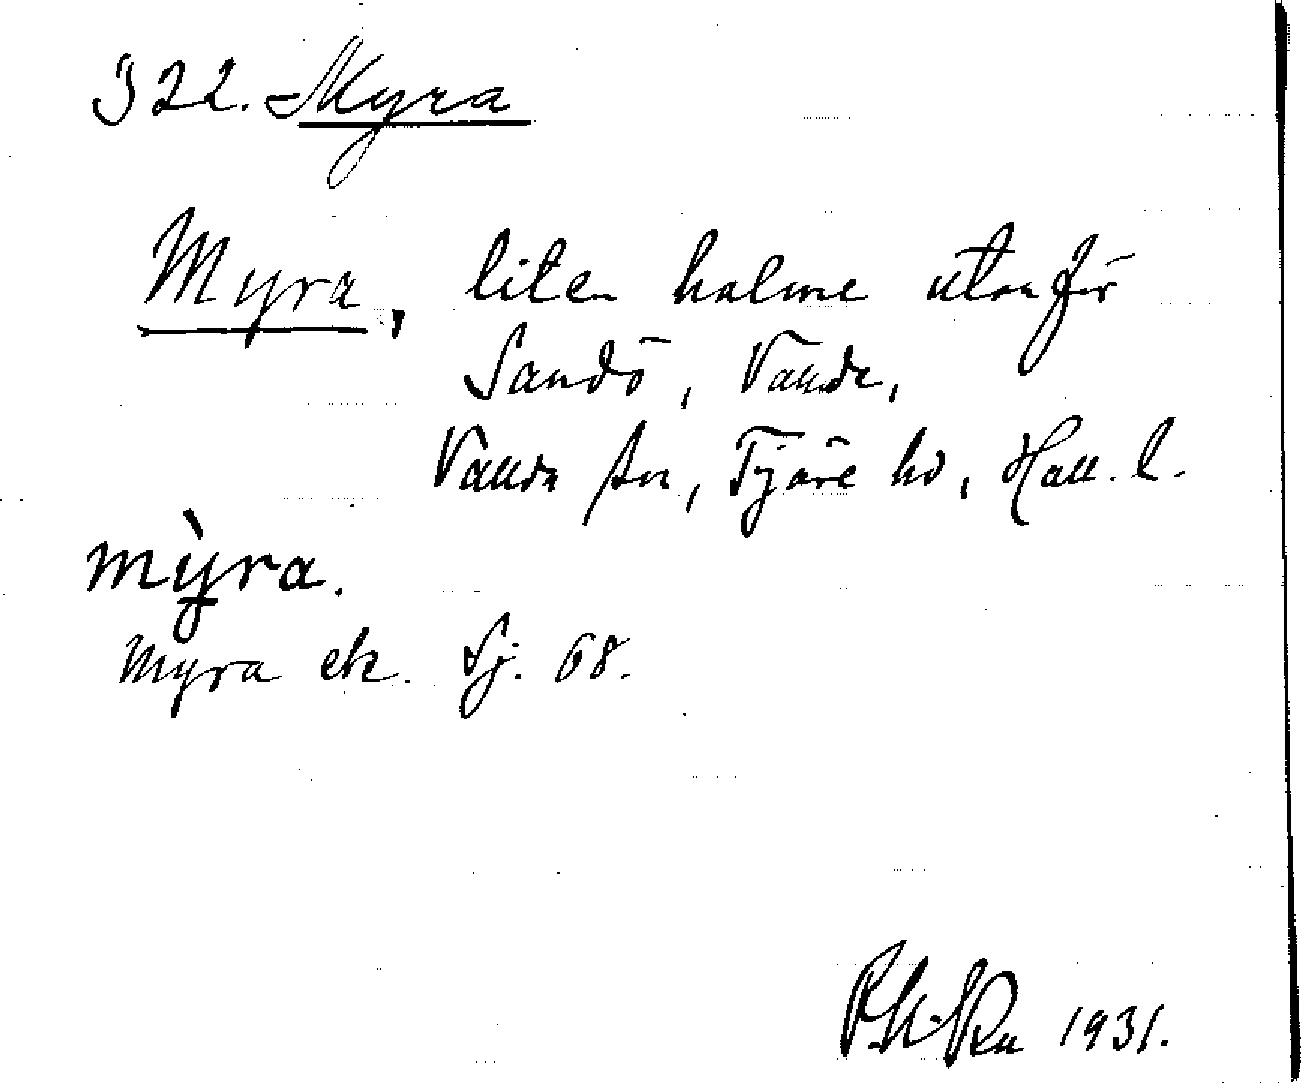 322. Myra
Myra, liten holme utanför
Sandö, Vallda,
Vallda sn, Fjäre hd, Hall. l.
mỳra.
Myra ek. Sj. 68.
1931.